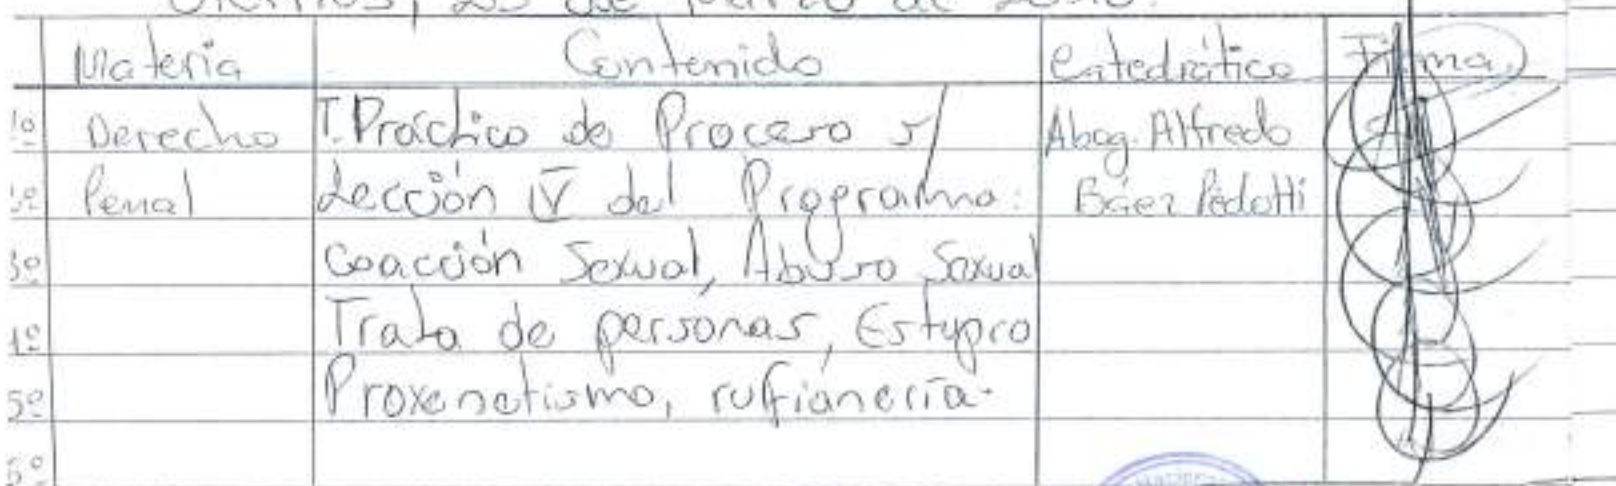 Viernes, 23 de Marzo de
Materia Contenido Catedrático Firma
1º Derecho T. Práctico de Proceso s/ Abog. Alfredo
2º Penal Lección IV del Programa: Báez Pedotti
3º Coacción Sexual, Abuso Sexual
4º Trata de personas, Estupro
5º Proxenetismo, rufianería.
6º